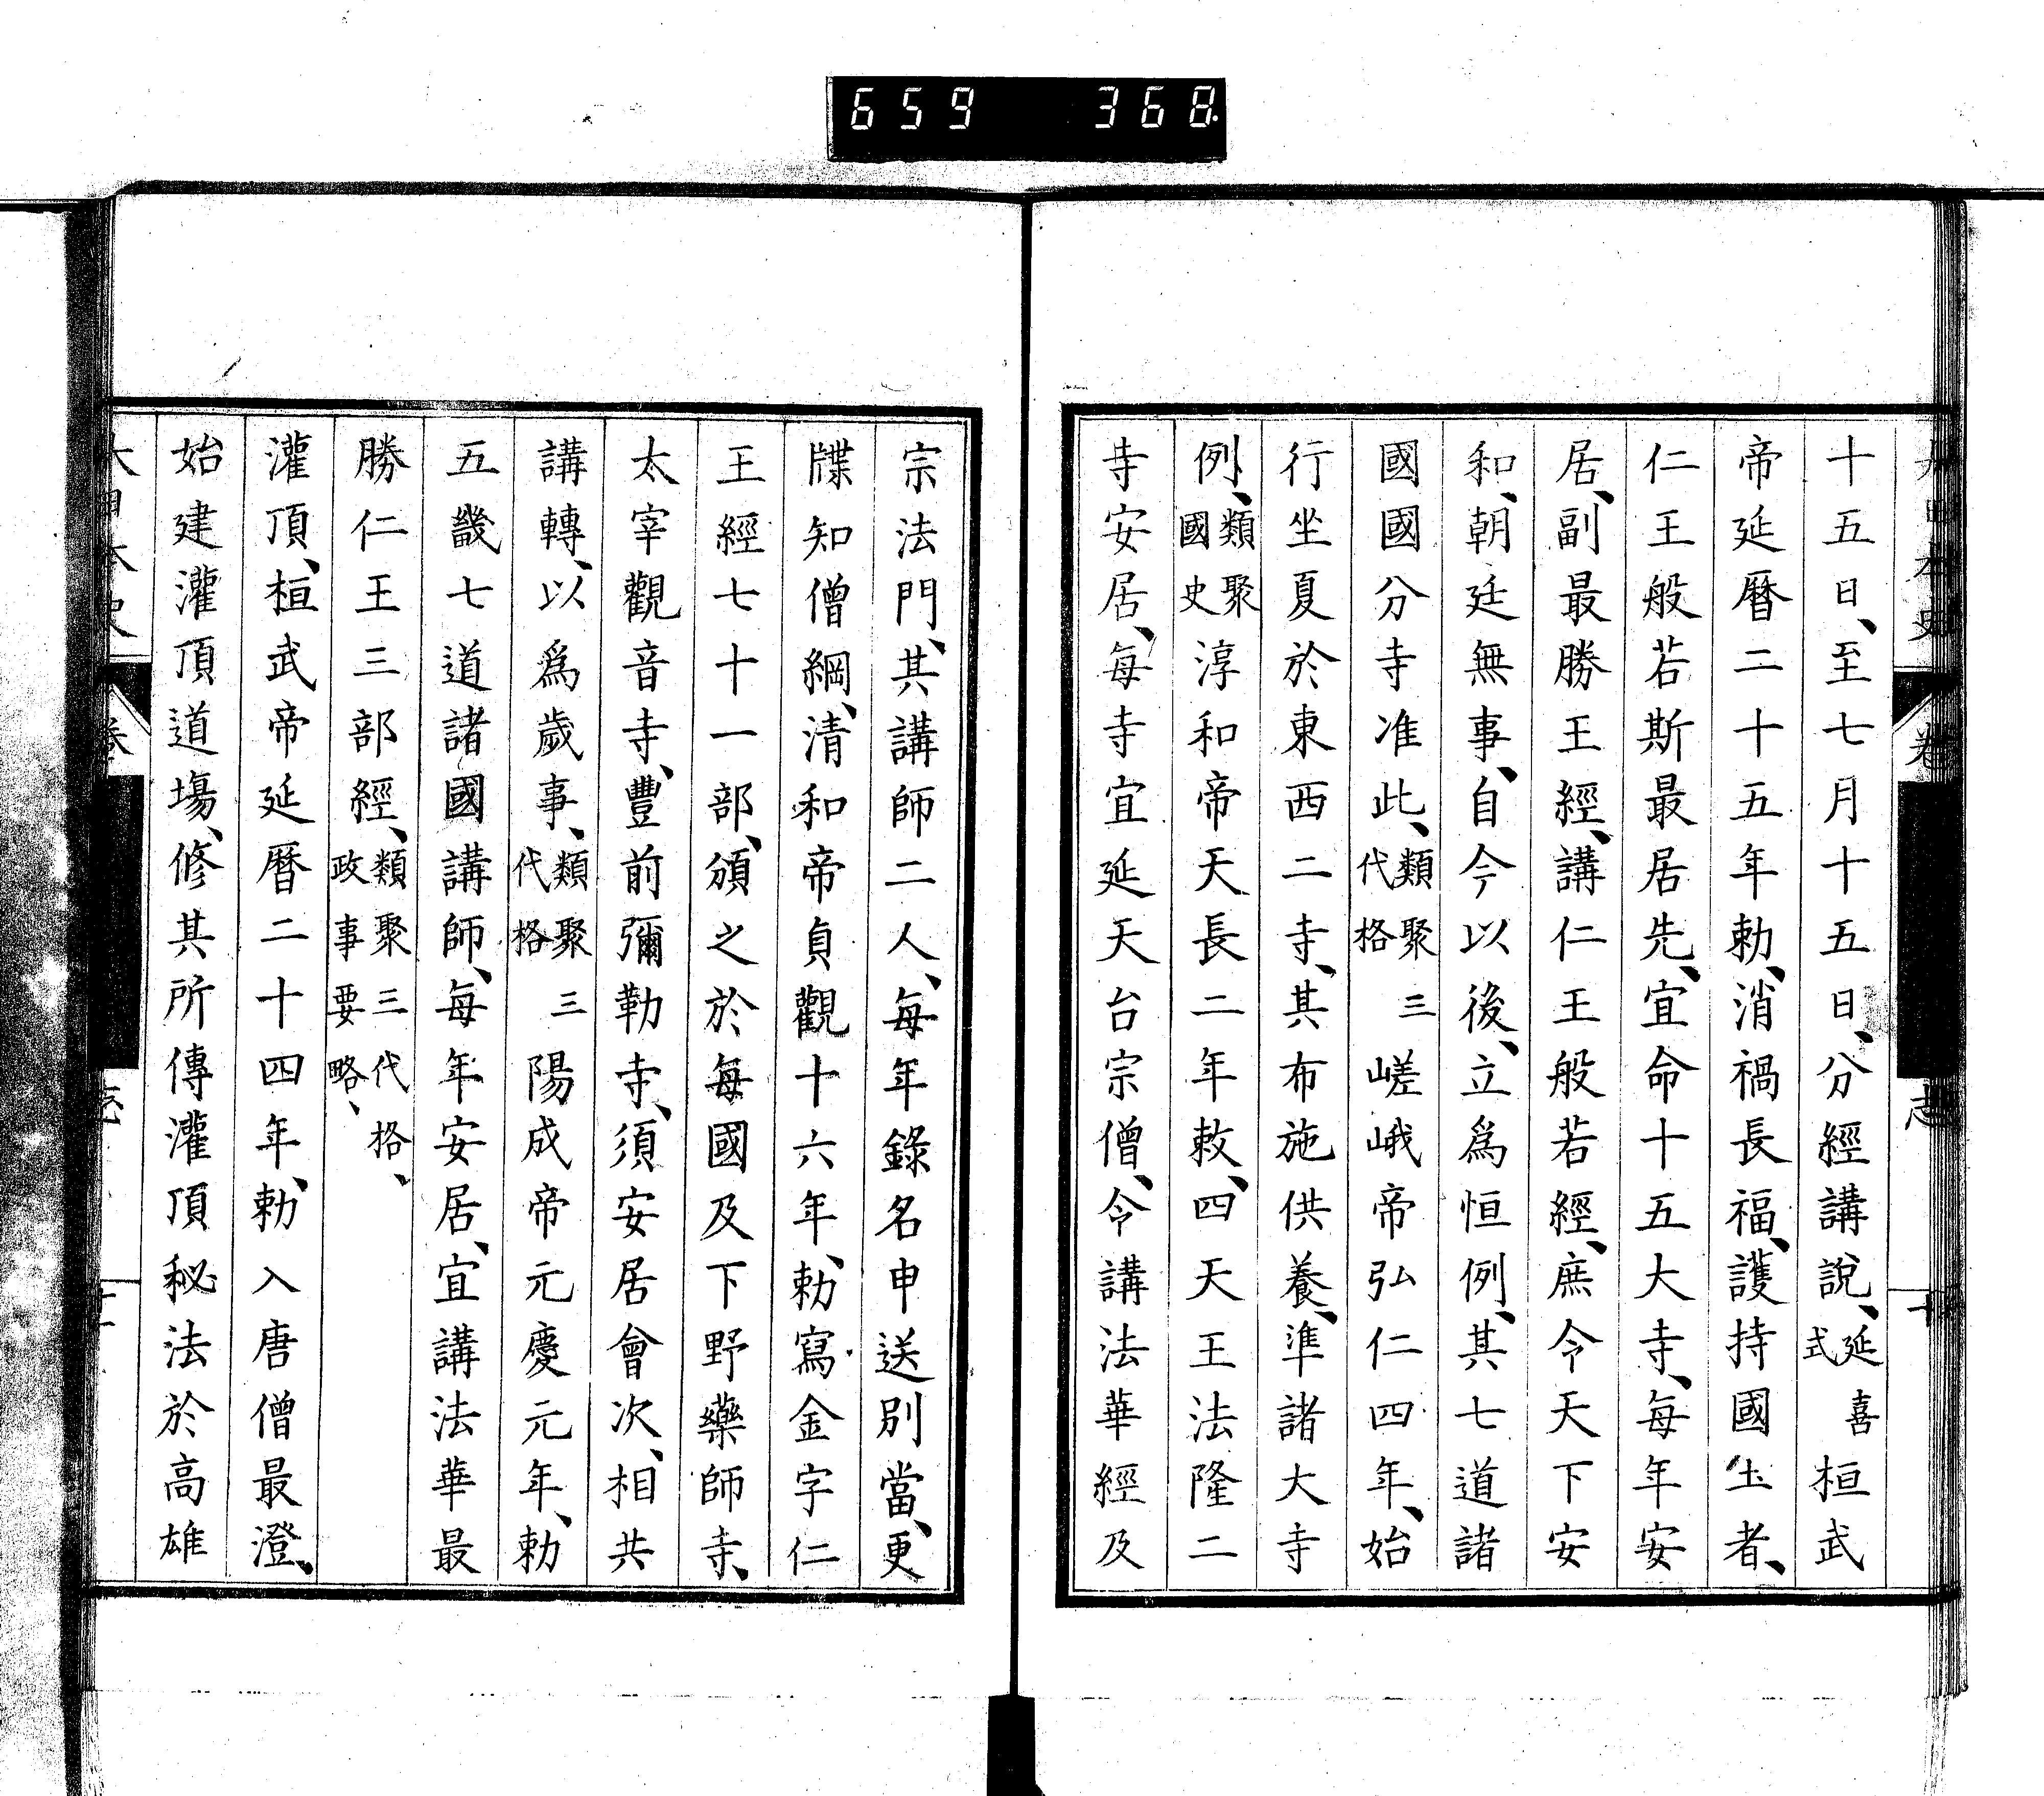 659 368
大日本史 卷 志 十
十五日、至七月十五日、分經講說、延喜式桓武
帝延曆二十五年勅、消禍長福、護持國土者、
仁王般若斯最居先、宜命十五大寺、每年安
居、副最勝王經、講仁王般若經、庶令天下安
和、朝廷無事、自今以後、立爲恒例、其七道諸
國國分寺准此、類聚三代格嵯峨帝弘仁四年、始
行坐夏於東西二寺、其布施供養、準諸大寺
例、類聚國史淳和帝天長二年敕、四天王法隆二
寺安居、每寺宜延天台宗僧、令講法華經及
宗法門、其講師二人、每年錄名申送別當、更
牒知僧綱、清和帝貞觀十六年、勅寫金字仁
王經七十一部、頒之於每國及下野藥師寺、
太宰觀音寺、豐前彌勒寺、須安居會次、相共
講轉、以爲歲事、類聚三代格陽成帝元慶元年、勅
五畿七道諸國講師、每年安居、宜講法華最
勝仁王三部經、類聚三代格、政事要略、
灌頂、桓武帝延曆二十四年、勅入唐僧最澄、
始建灌頂道場、修其所傳灌頂秘法於高雄
大日本史 卷 志 十一